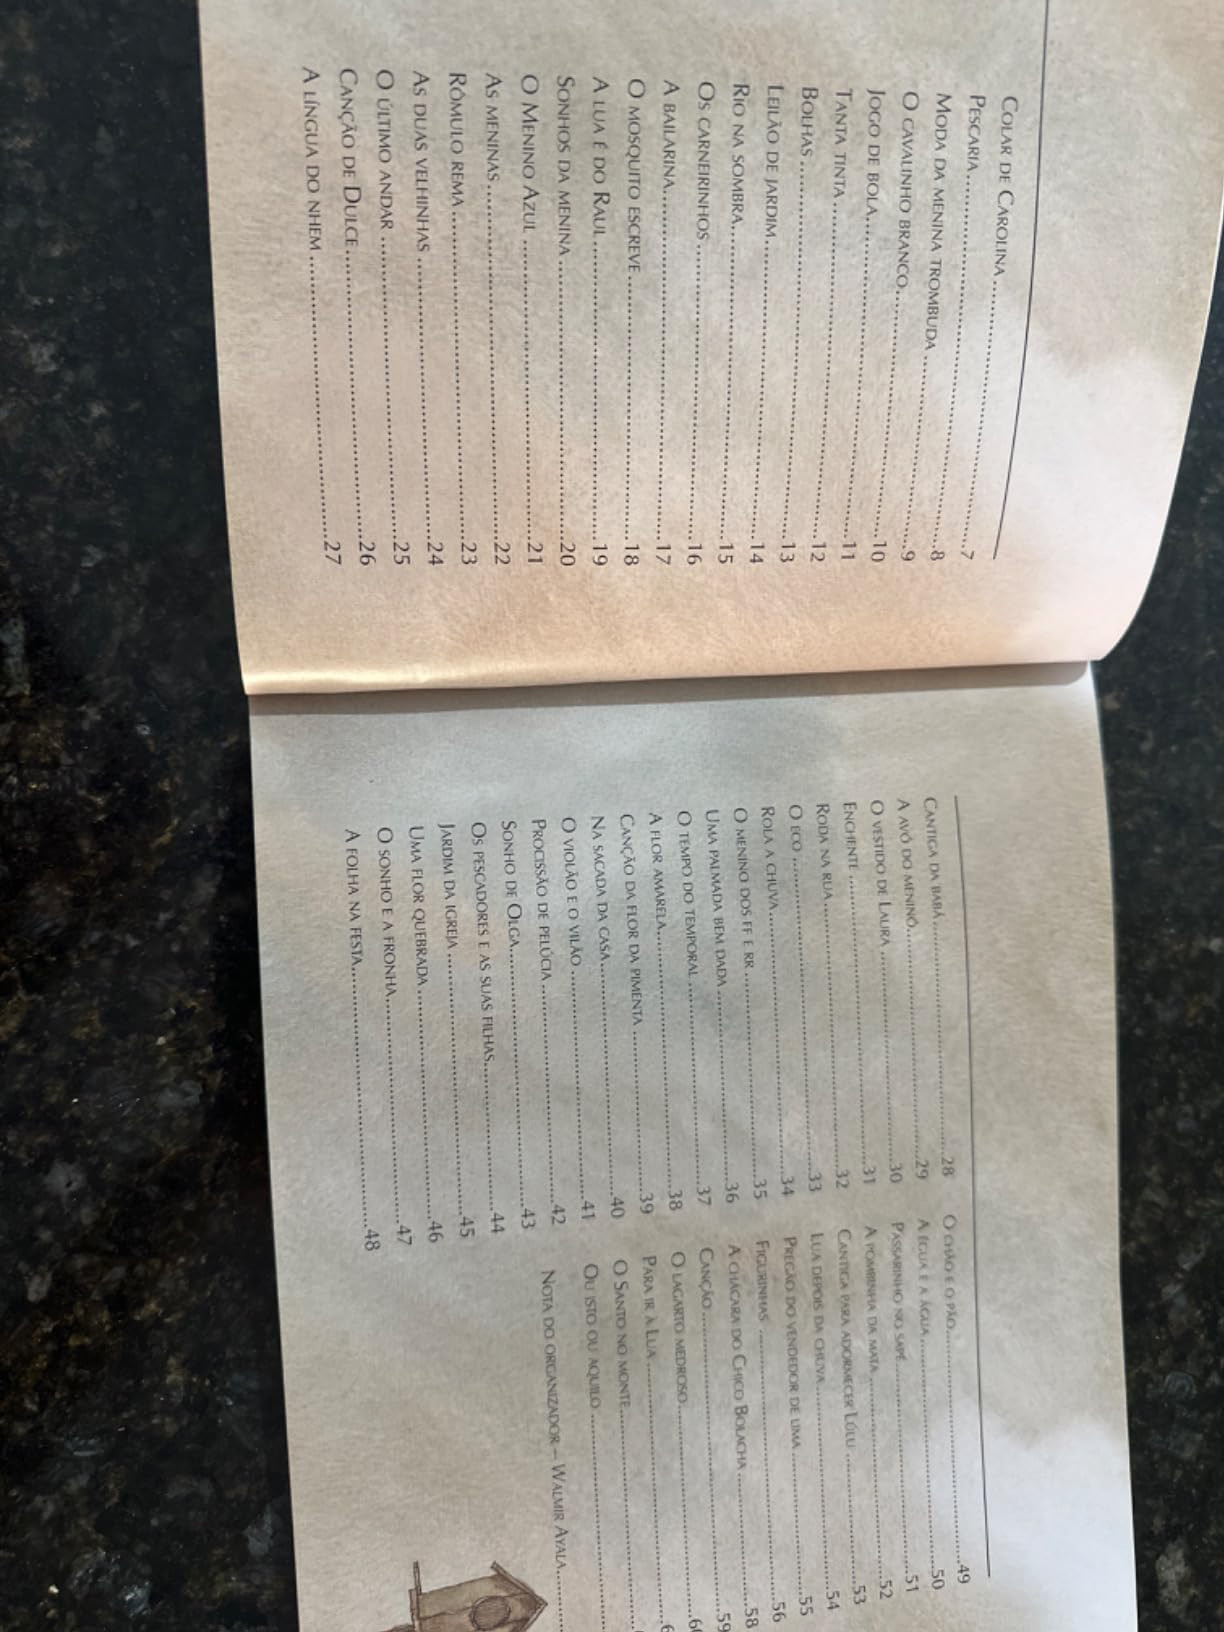 COLAR DE CAROLINA ........ 7
PESCARIA ........ 8
MODA DA MENINA TROMBUDA ........ 9
O CAVALINHO BRANCO ........ 10
JOGO DE BOLA ........ 11
TANTA TINTA ........ 12
BOLHAS ........ 13
LEILÃO DE JARDIM ........ 14
RIO NA SOMBRA ........ 15
OS CARNEIRINHOS ........ 16
A BAILARINA ........ 17
O MOSQUITO ESCREVE ........ 18
A LUA É DO RAUL ........ 19
SONHOS DA MENINA ........ 20
O MENINO AZUL ........ 21
AS MENINAS ........ 22
RÔMULO REMA ........ 23
AS DUAS VELHINHAS ........ 24
O ÚLTIMO ANDAR ........ 25
CANÇÃO DE DULCE ........ 26
A LÍNGUA DO NHEM ........ 27
CANTIGA DA BABÁ ........ 28
A AVÓ DO MENINO ........ 29
O VESTIDO DE LAURA ........ 30
ENCHENTE ........ 31
RODA NA RUA ........ 32
O ECO ........ 33
ROLA A CHUVA ........ 34
O MENINO DOS FF E RR ........ 35
UMA PALMADA BEM DADA ........ 36
O TEMPO DO TEMPORAL ........ 37
A FLOR AMARELA ........ 38
CANÇÃO DA FLOR DA PIMENTA ........ 39
NA SACADA DA CASA ........ 40
O VIOLÃO E O VILÃO ........ 41
PROCISSÃO DE PELÚCIA ........ 42
SONHO DE OLGA ........ 43
OS PESCADORES E AS SUAS FILHAS ........ 44
JARDIM DA IGREJA ........ 45
UMA FLOR QUEBRADA ........ 46
O SONHO E A FRONHA ........ 47
A FOLHA NA FESTA ........ 48
O CHÃO E O PÃO ........ 49
A ÉGUA E A ÁGUA ........ 50
PASSARINHO NO SAPÉ ........ 51
A POMBINHA DA MATA ........ 52
CANTIGA PARA ADORMECER LÚLU ........ 53
LUA DEPOIS DA CHUVA ........ 54
PREGÃO DO VENDEDOR DE LIMA ........ 55
FIGURINHAS ........ 56
A CHÁCARA DO CHICO BOLACHA ........ 58
CANÇÃO ........ 59
O LAGARTO MEDROSO ........ 60
PARA IR À LUA ........
O SANTO NO MONTE ........
OU ISTO OU AQUILO ........
NOTA DO ORGANIZADOR – WALMIR AYALA ........